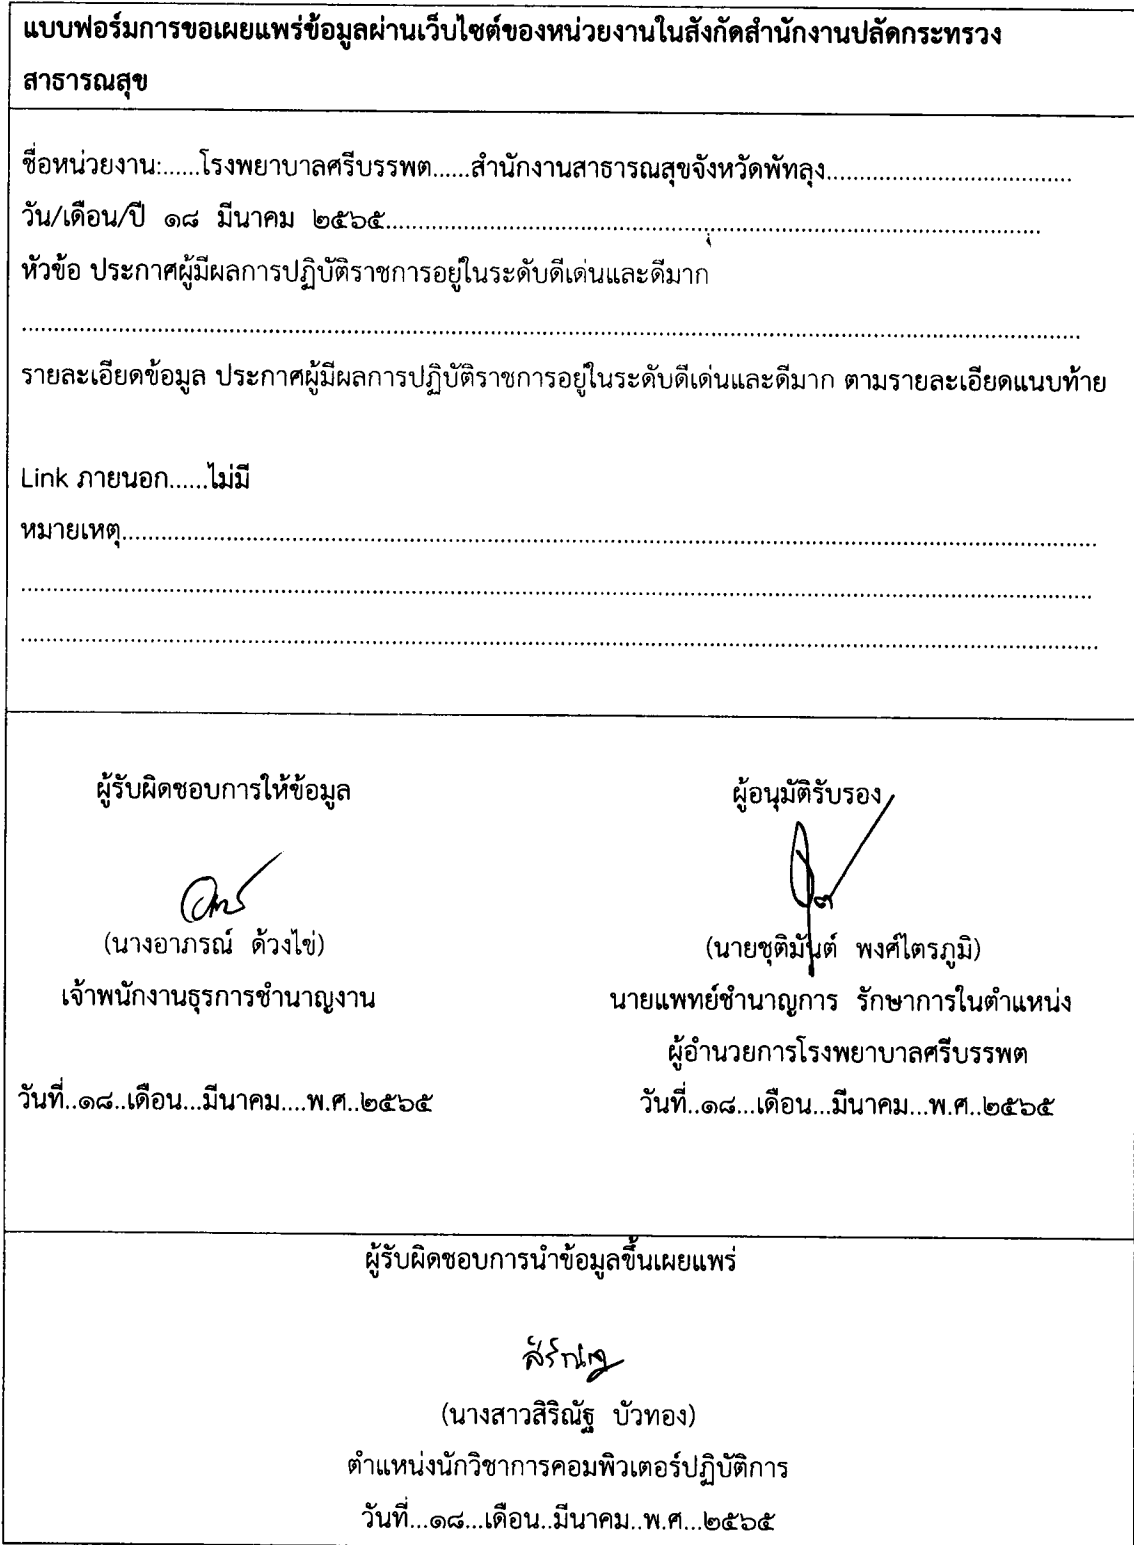 แบบฟอร์มการขอเผยแพร่ข้อมูลผ่านเว็บไซต์ของหน่วยงานในสังกัดสำนักงานปลัดกระทรวง
สาธารณสุข
ชื่อหน่วยงาน:......โรงพยาบาลศรีบรรพต......สำนักงานสาธารณสุขจังหวัดพัทลุง......................................
วัน/เดือน/ปี ๑๘ มีนาคม ๒๕๖๕....................................................................................................
หัวข้อ ประกาศผู้มีผลการปฏิบัติราชการอยู่ในระดับดีเด่นและดีมาก
..................................................................................................................................................................
รายละเอียดข้อมูล ประกาศผู้มีผลการปฏิบัติราชการอยู่ในระดับดีเด่นและดีมาก ตามรายละเอียดแนบท้าย
Link ภายนอก......ไม่มี
หมายเหตุ......................................................................................................................................................
....................................................................................................................................................................
.....................................................................................................................................................................
ผู้รับผิดชอบการให้ข้อมูล
(นางอาภรณ์ ด้วงไข่)
เจ้าพนักงานธุรการชำนาญงาน
วันที่..๑๘..เดือน...มีนาคม....พ.ศ..๒๕๖๕
ผู้อนุมัติรับรอง
(นายชุติมันต์ พงศ์ไตรภูมิ)
นายแพทย์ชำนาญการ รักษาการในตำแหน่ง
ผู้อำนวยการโรงพยาบาลศรีบรรพต
วันที่..๑๘...เดือน...มีนาคม...พ.ศ..๒๕๖๕
ผู้รับผิดชอบการนำข้อมูลขึ้นเผยแพร่
(นางสาวสิริณัฐ บัวทอง)
ตำแหน่งนักวิชาการคอมพิวเตอร์ปฏิบัติการ
วันที่...๑๘...เดือน..มีนาคม..พ.ศ...๒๕๖๕